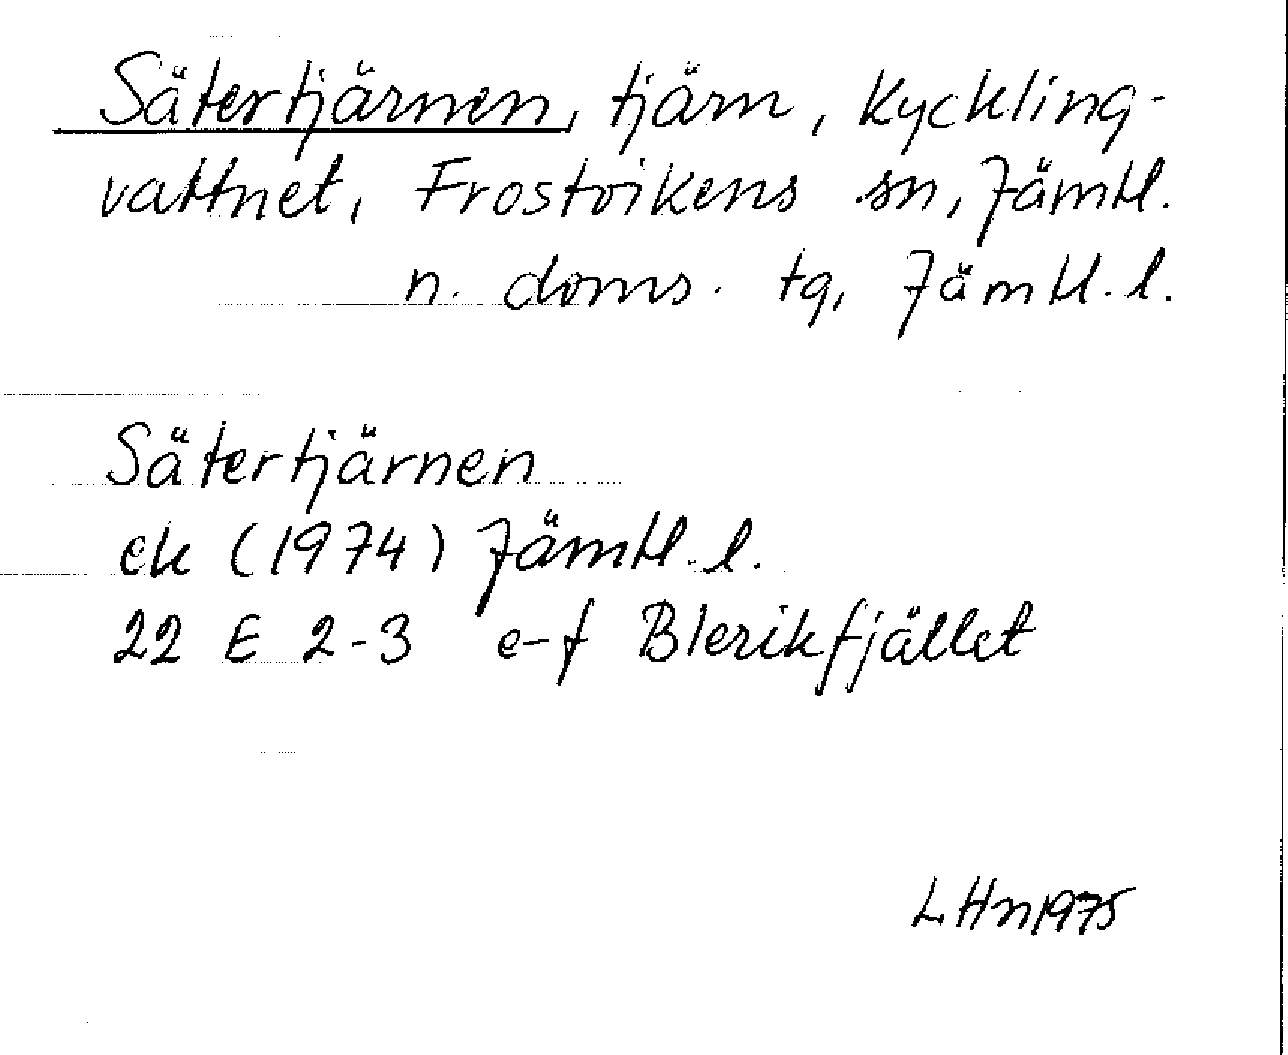 Sätertjärnen, tjärn, Kyckling-
vattnet, Frostvikens sn, Jämtl.
n. doms. tg, Jämtl. l.
Sätertjärnen
ek (1974) Jämtl. l.
22 E 2-3 e-f Blerikfjället
LHn 1975